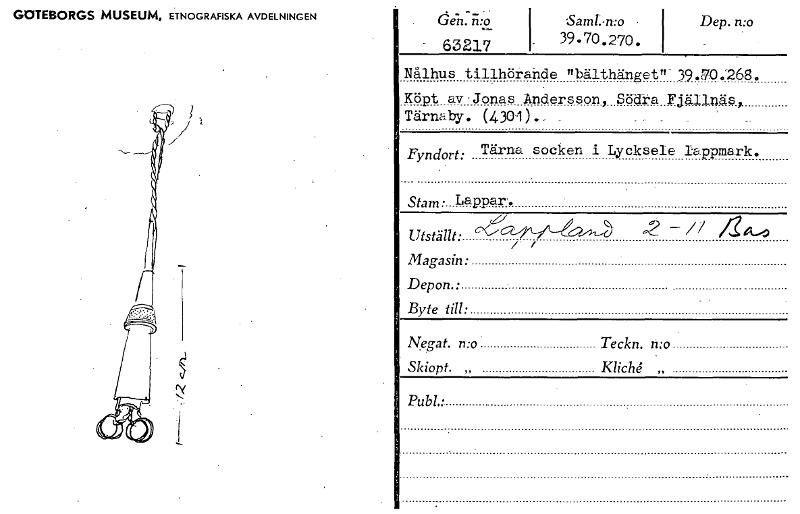 GÖTEBORGS MUSEUM, ETNOGRAFISKA AVDELNINGEN
12 cm
Gen. n:o
63217
Saml. n:o
39.70.270.
Dep. n:o
Nålhus tillhörande "bälthänget" 39.70.268.
Köpt av Jonas Andersson, Södra Fjällnäs,
Tärnaby. (4301).
Fyndort: Tärna socken i Lycksele lappmark.
Stam: Lappar.
Utställt: Lappland 2-11 Bas
Magasin:
Depon.:
Byte till:
Negat. n:o Teckn. n:o
Skiopt. „ Kliché „
Publ.: